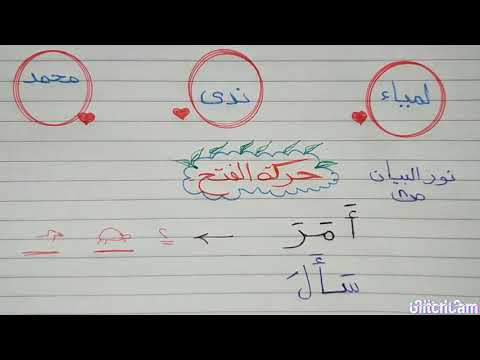 لمياء ندى محمد
حركة الفتح
نور البيان
أَ مَ رَ ←
سَأَلَ
GlitchCam